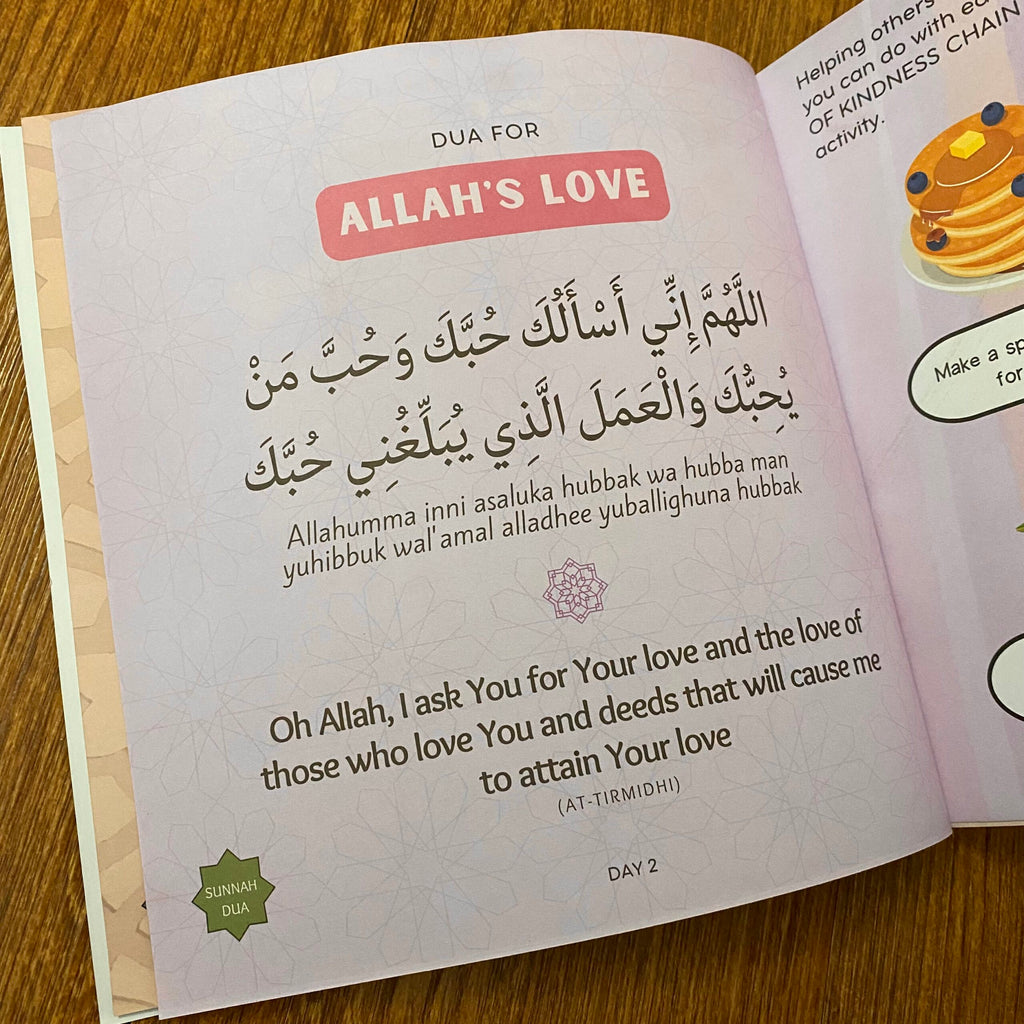 DUA FOR
ALLAH'S LOVE
اللَّهُمَّ إِنِّي أَسْأَلُكَ حُبَّكَ وَحُبَّ مَنْ
يُحِبُّكَ وَالْعَمَلَ الَّذِي يُبَلِّغُنِي حُبَّكَ
Allahumma inni asaluka hubbak wa hubba man
yuhibbuk wal'amal alladhee yuballighuna hubbak
Oh Allah, I ask You for Your love and the love of
those who love You and deeds that will cause me
to attain Your love
(AT-TIRMIDHI)
SUNNAH
DUA
DAY 2
Helping others
you can do with
OF KINDNESS CHAIN
activity.
Make a
for